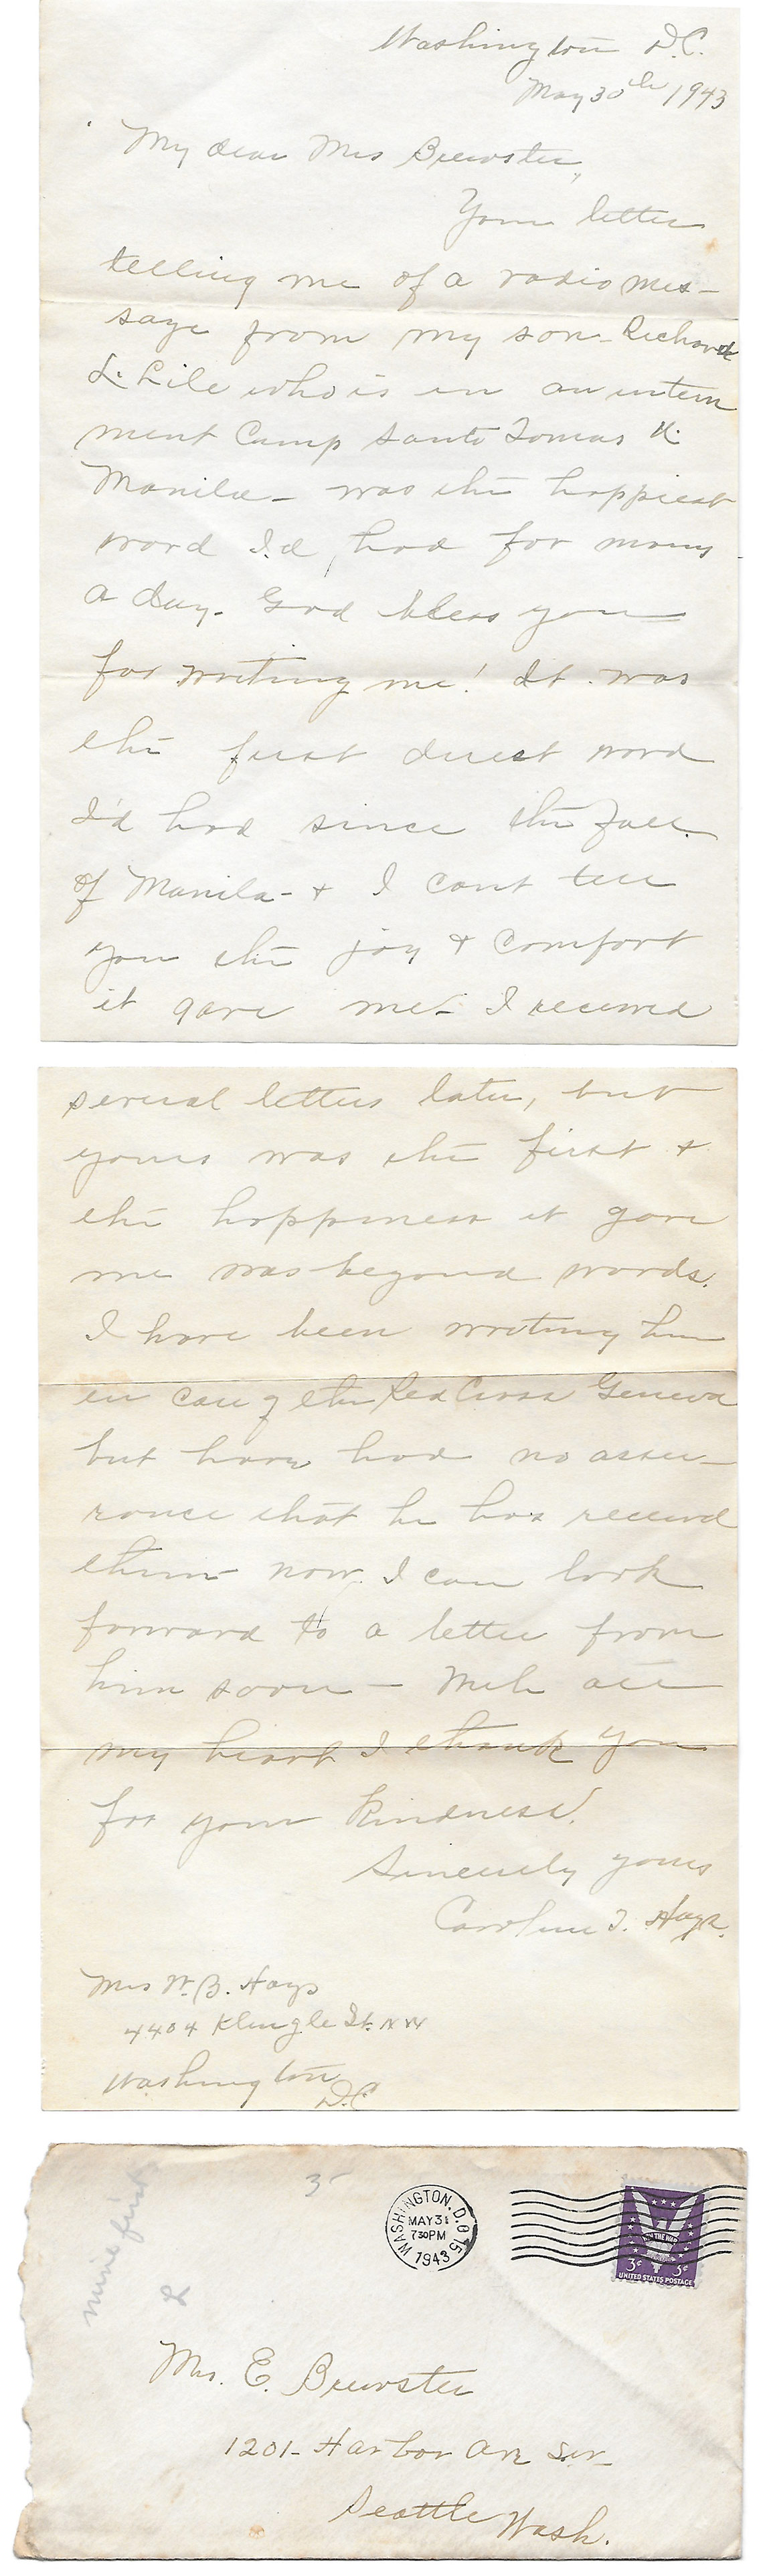 Washington D.C.
May 30th 1943
My dear Mrs Brewster,
Your letter
telling me of a radio mes-
sage from my son - Richard
L. Lile who is in an intern
ment Camp Santo Tomas
Manila - was the happiest
word I'd had for many
a day. God bless you
for writing me! It was
the first direct word
I'd had since the fall
of Manila - & I cant tell
you the joy & comfort
it gave me - I received
several letters later, but
yours was the first &
the happiness it gave
me was beyond words.
I have been writing him
in care of the Red Cross Geneva
but have had no assu-
rance that he has received
them now I can look
forward to a letter from
him soon - With all
my heart I thank you
for your kindness.
Sincerely yours
Caroline T. Hays.
Mrs W. B. Hays
4404 Klingle St. N W
Washington
D.C
mine first
L
3
WASHINGTON, D.C. 15
MAY 31
730PM
1943
WIN THE WAR
3¢ 3¢
UNITED STATES POSTAGE
Mrs. E. Brewster
1201 - Harbor Ave S.W.
Seattle Wash.